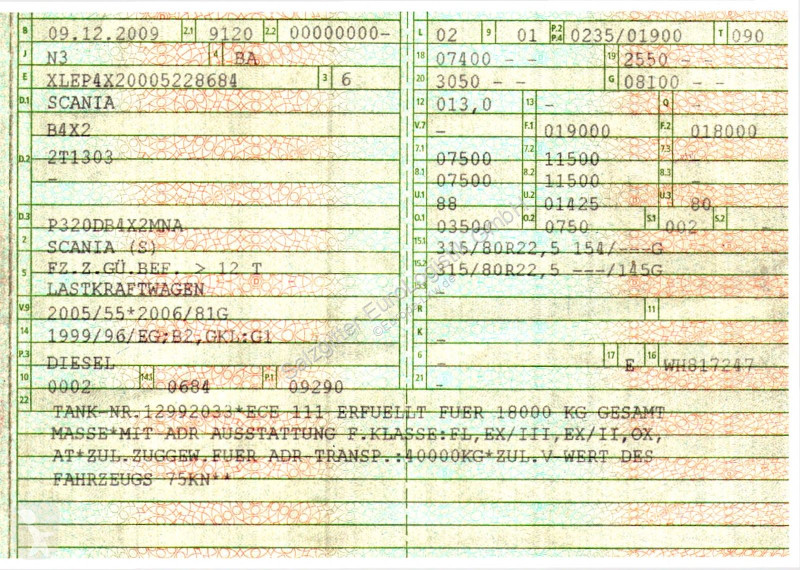 B 09.12.2009 2.1 9120 2.2 00000000-
J N3 4 BA
E XLEP4X20005228684 3 6
D.1 SCANIA
B4X2
D.2 2T1303
-
D.3 P320DB4X2MNA
2 SCANIA (S)
5 FZ.Z.GÜ.BEF. > 12 T
LASTKRAFTWAGEN
V.9 2005/55*2006/81G
14 1999/96/EG;B2,GKL:G1
P.3 DIESEL
10 0002 14.1 0684 P.1 09290
L 02 9 01 P.2 P.4 0235/01900 T 090
18 07400 - - 19 2550 - -
20 3050 - - G 08100 - -
12 013,0 13 - Q -
V.7 - F.1 019000 F.2 018000
7.1 07500 7.2 11500 7.3 -
8.1 07500 8.2 11500 8.3 -
U.1 88 U.2 01425 U.3 80
O.1 03500 O.2 0750 S.1 002 S.2 -
15.1 315/80R22,5 154/---G
15.2 315/80R22,5 ---/145G
15.3 -
R - 11 -
K -
6 - 17 E 16 WH817247
21 -
22 TANK-NR.12992033*ECE 111 ERFUELLT FUER 18000 KG GESAMT
MASSE*MIT ADR AUSSTATTUNG F.KLASSE:FL,EX/III,EX/II,OX,
AT*ZUL.ZUGGEW.FUER ADR-TRANSP.:40000KG*ZUL.V-WERT DES
FAHRZEUGS 75KN**
Salzgitter Eurologistik GmbH